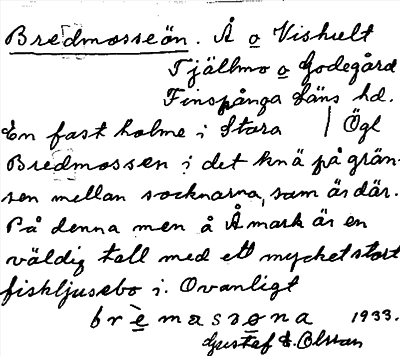 Bredmosseön. Å o Viskult
Tjällmo o Godegård
Finspånga läns hd.
En fast holme i Stora | Ögl
Bredmossen i det knä på grän-
sen mellan socknarna, som är där.
På denna men å Åmark är en
väldig tall med ett mycket stort
fiskljusebo i. Ovanligt
brèmassøna 1933.
Gustaf E. Olsson